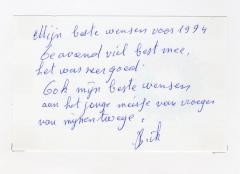 Mijn beste wensen voor 1994
De avond viel best mee,
het was zeer goed.
Ook mijn beste wensen
aan het jonge meisje van vroeger
van mijnentwege.